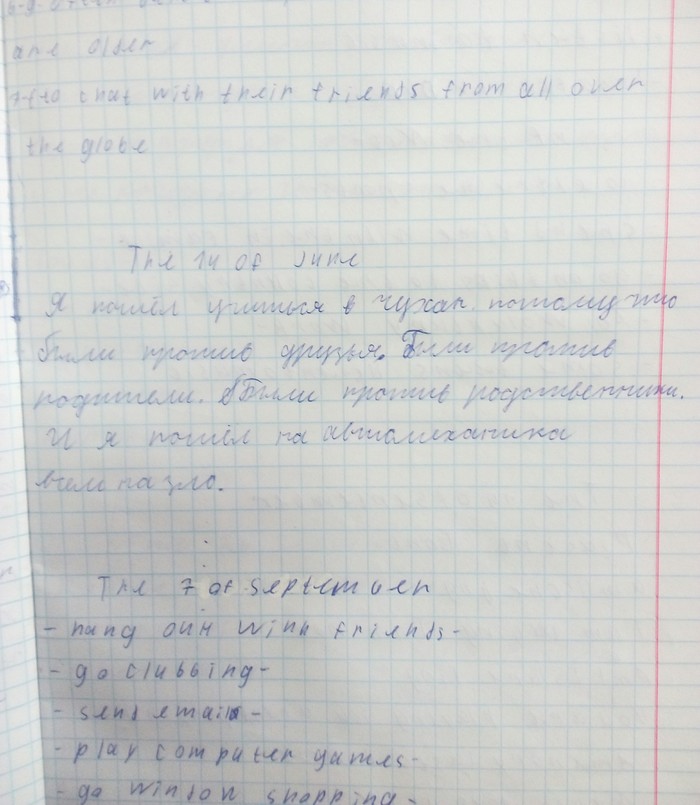 are older
7-f to chat with their friends from all over
the globe
The 14 of June
Я пошёл учиться в чухан потому что
были против друзья. Были против
родители. Были против родственники.
И я пошёл на автомеханика
всем назло.
The 7 of september
- hang out with friends-
- go clubbing-
- send email-
- play computer games-
- go window shopping-